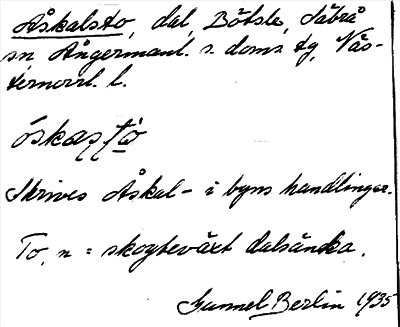 Åskalsto, dal, Bölsle, Säbrå
sn Ångermanl. s. doms. tg, Väs-
ternorrl. l.
óskasto
Skrives Åskal- i byns handlingar.
To, n = skogbeväxt dalsänka.
Gunnel Berlin 1935